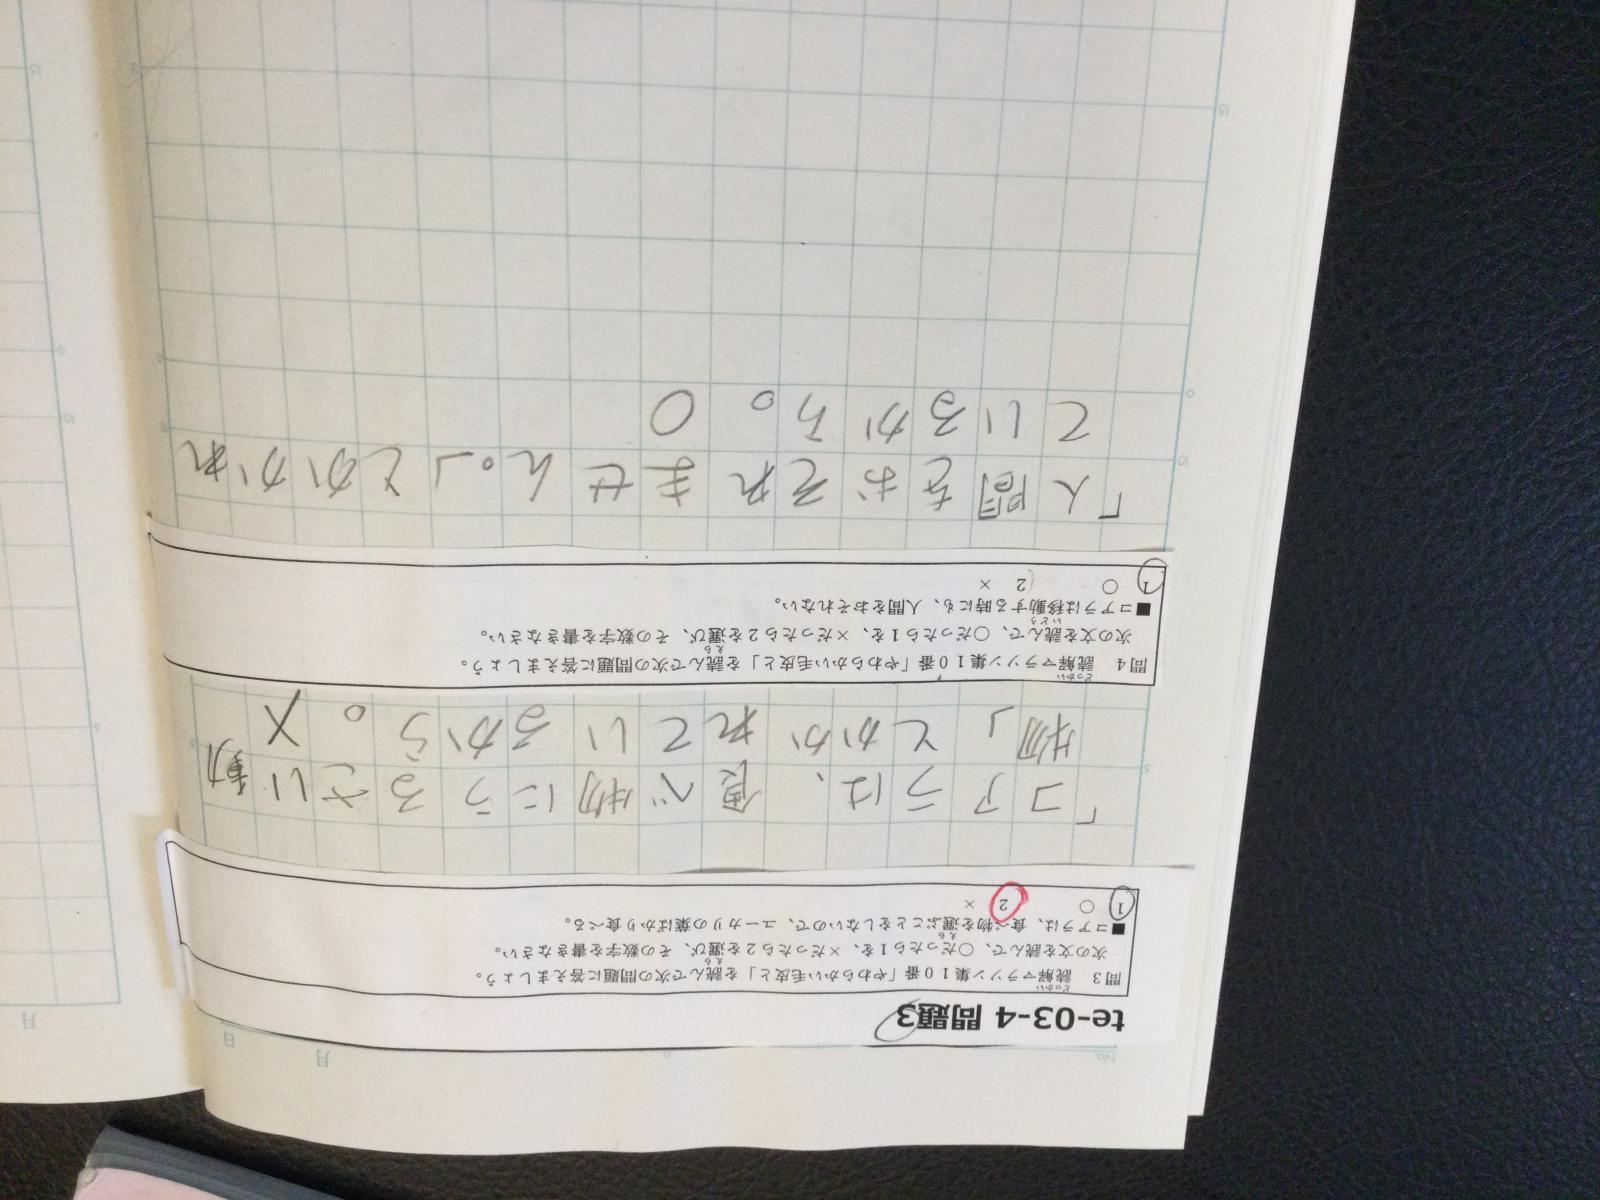 te-03-4 問題3
問3 読解マラソン集10番「やわらかい毛皮と」を読んで次の問題に答えましょう。
次の文を読んで、○だったら1を、×だったら2を選び、その数字を書きなさい。
■コアラは、食べ物を選ぶことをしないので、ユーカリの葉ばかり食べる。
1 ○ 2 ×
「コアラは、食べ物にうるさい動
物」とかかれているから。 X
問4 読解マラソン集10番「やわらかい毛皮と」を読んで次の問題に答えましょう。
次の文を読んで、○だったら1を、×だったら2を選び、その数字を書きなさい。
■コアラは移動する時にも、人間をおそれない。
1 ○ 2 ×
「人間をおそれません。」とかかれ
ているから。 ○